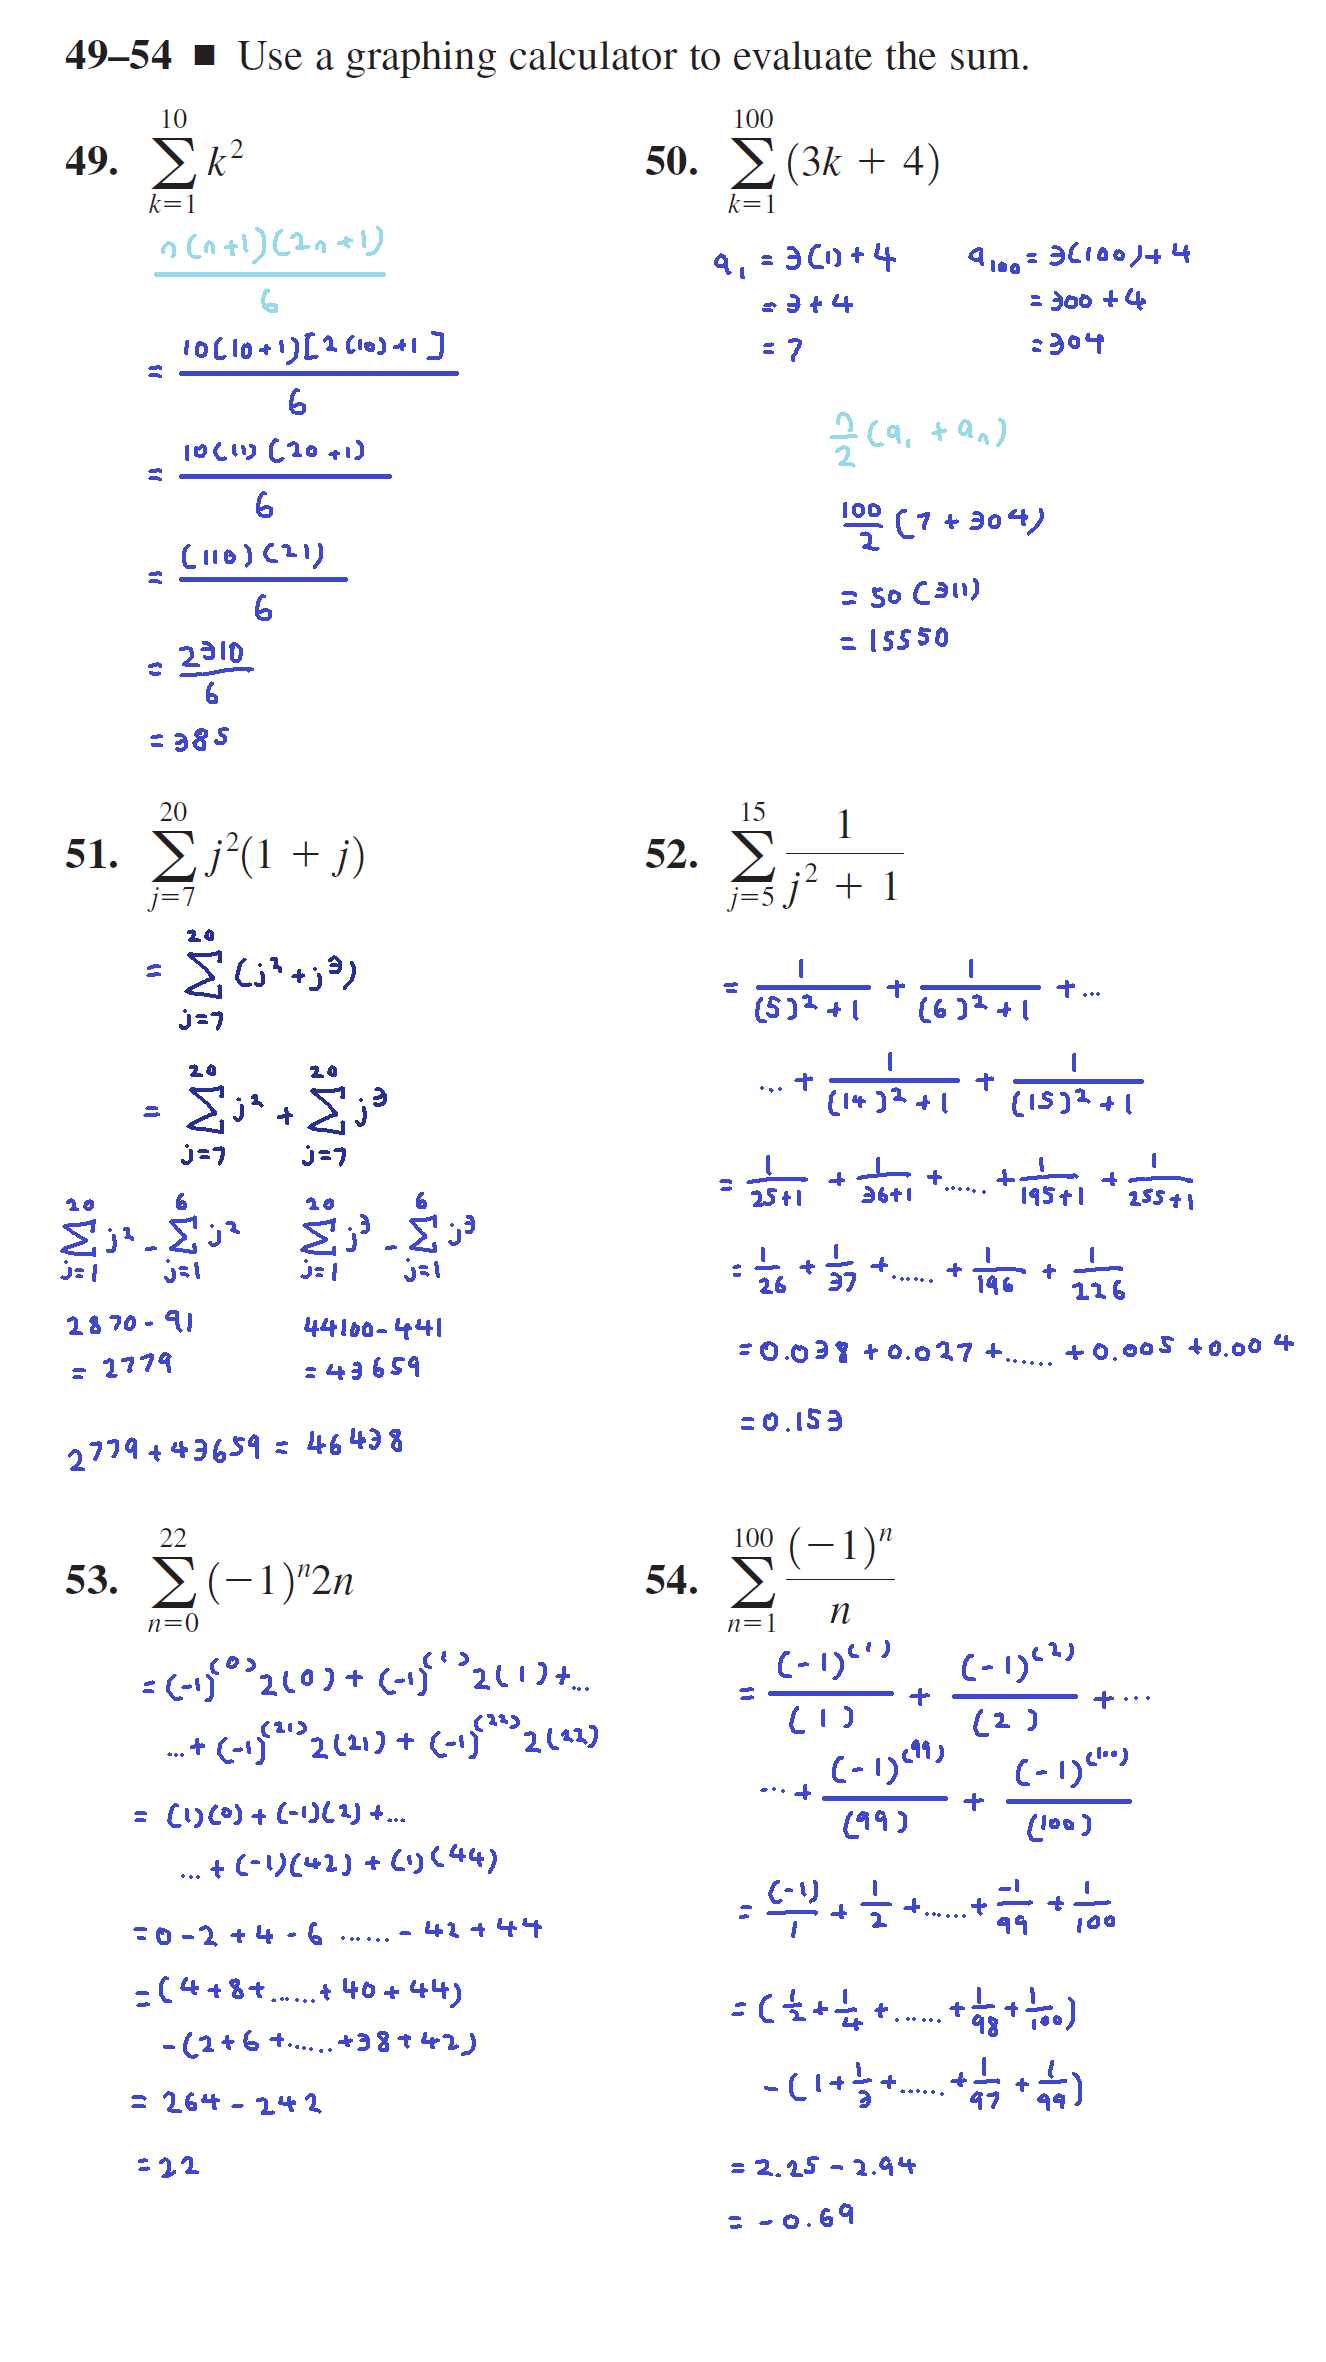 49–54 ■ Use a graphing calculator to evaluate the sum.
49. \sum_{k=1}^{10} k^2
n(n+1)(2n+1)/6
= 10(10+1)[2(10)+1]/6
= 10(11)(20+1)/6
= (110)(21)/6
= 2310/6
= 385
50. \sum_{k=1}^{100} (3k + 4)
a_1 = 3(1)+4
= 3+4
= 7
a_100 = 3(100)+4
= 300+4
= 304
n/2 (a_1 + a_n)
100/2 (7+304)
= 50(311)
= 15550
51. \sum_{j=7}^{20} j^2(1 + j)
= \sum_{j=7}^{20} (j^2+j^3)
= \sum_{j=7}^{20} j^2 + \sum_{j=7}^{20} j^3
\sum_{j=1}^{20} j^2 - \sum_{j=1}^{6} j^2
2870-91
= 2779
\sum_{j=1}^{20} j^3 - \sum_{j=1}^{6} j^3
44100-441
= 43659
2779+43659 = 46438
52. \sum_{j=5}^{15} 1/(j^2 + 1)
= 1/((5)^2+1) + 1/((6)^2+1) + ...
... + 1/((14)^2+1) + 1/((15)^2+1)
= 1/(25+1) + 1/(36+1) + ...... + 1/(195+1) + 1/(255+1)
= 1/26 + 1/37 + ...... + 1/196 + 1/226
= 0.038 + 0.027 + ...... + 0.005 + 0.004
= 0.153
53. \sum_{n=0}^{22} (−1)^n 2n
= (-1)^(0) 2(0) + (-1)^(1) 2(1) + ...
... + (-1)^(21) 2(21) + (-1)^(22) 2(22)
= (1)(0) + (-1)(2) + ...
... + (-1)(42) + (1)(44)
= 0 - 2 + 4 - 6 ...... - 42 + 44
= (4+8+......+40+44)
-(2+6+......+38+42)
= 264 - 242
= 22
54. \sum_{n=1}^{100} (−1)^n/n
= (-1)^(1)/(1) + (-1)^(2)/(2) + ...
... + (-1)^(99)/(99) + (-1)^(100)/(100)
= (-1)/1 + 1/2 + ...... + -1/99 + 1/100
= (1/2 + 1/4 + ...... + 1/98 + 1/100)
-(1 + 1/3 + ...... + 1/97 + 1/99)
= 2.25 - 2.94
= -0.69